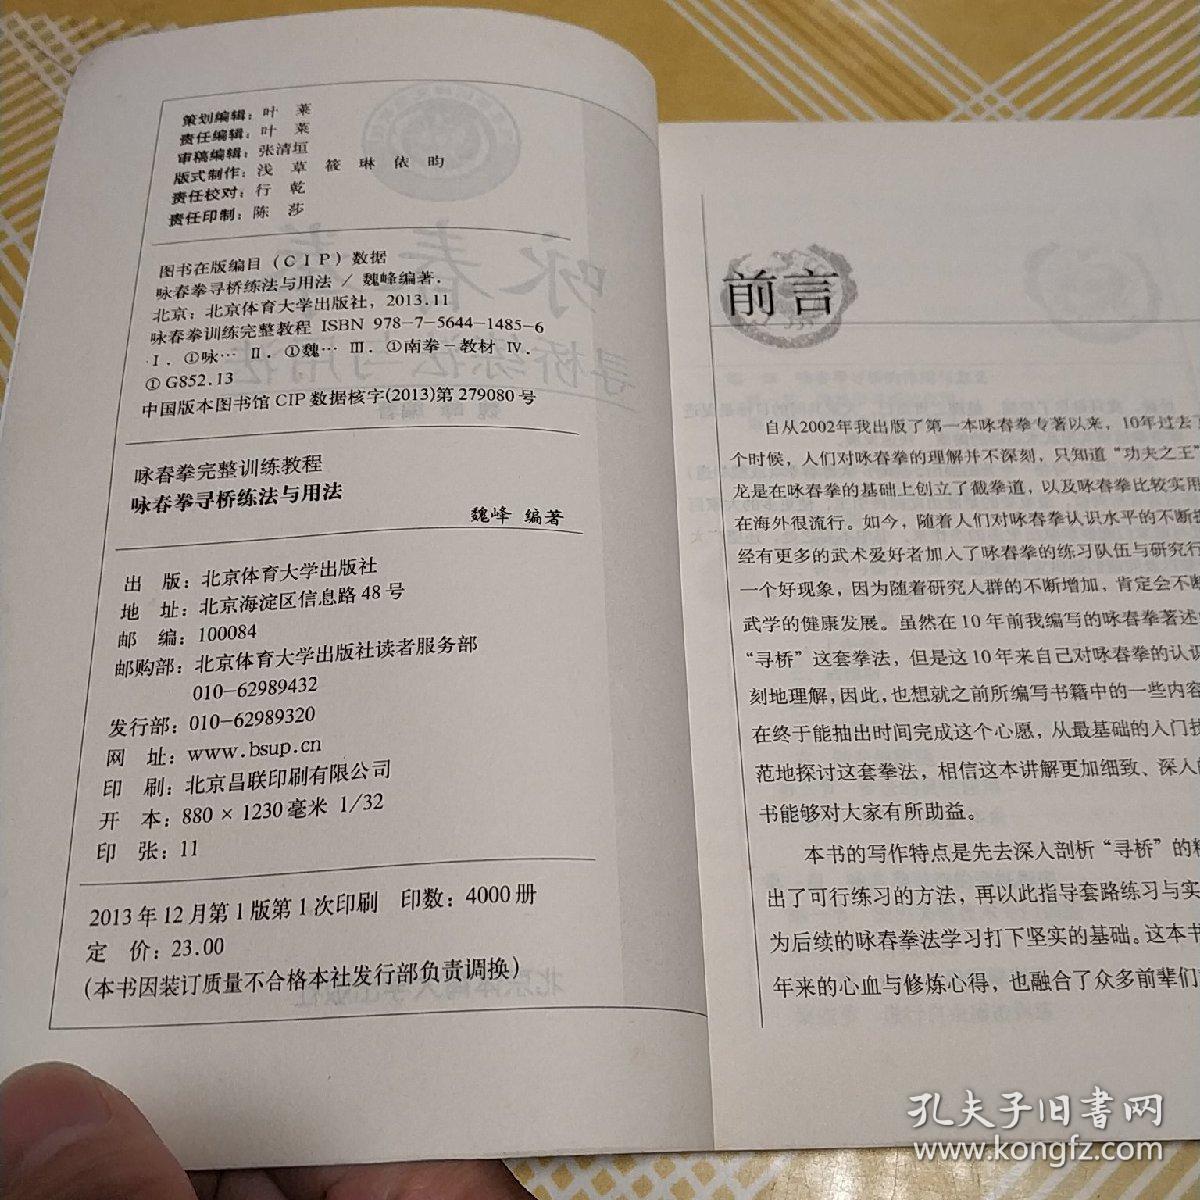 策划编辑：叶 莱
责任编辑：叶 莱
审稿编辑：张清垣
版式制作：浅 草 筱 琳 依 昀
责任校对：行 乾
责任印制：陈 莎
图书在版编目（CIP）数据
咏春拳寻桥练法与用法 / 魏峰编著.
北京：北京体育大学出版社，2013.11
咏春拳训练完整教程 ISBN 978-7-5644-1485-6
Ⅰ. ①咏… Ⅱ. ①魏… Ⅲ. ①南拳-教材 Ⅳ.
①G852.13
中国版本图书馆CIP数据核字(2013)第279080号
咏春拳完整训练教程
咏春拳寻桥练法与用法
魏峰 编著
出 版：北京体育大学出版社
地 址：北京海淀区信息路48号
邮 编：100084
邮购部：北京体育大学出版社读者服务部
010-62989432
发行部：010-62989320
网 址：www.bsup.cn
印 刷：北京昌联印刷有限公司
开 本：880×1230毫米 1/32
印 张：11
2013年12月第1版第1次印刷 印数：4000册
定 价：23.00
(本书因装订质量不合格本社发行部负责调换)
前言
自从2002年我出版了第一本咏春拳专著以来，10年过去了
个时候，人们对咏春拳的理解并不深刻，只知道“功夫之王”
龙是在咏春拳的基础上创立了截拳道，以及咏春拳比较实用
在海外很流行。如今，随着人们对咏春拳认识水平的不断提
经有更多的武术爱好者加入了咏春拳的练习队伍与研究行
一个好现象，因为随着研究人群的不断增加，肯定会不断
武学的健康发展。虽然在10年前我编写的咏春拳著述
“寻桥”这套拳法，但是这10年来自己对咏春拳的认识
刻地理解，因此，也想就之前所编写书籍中的一些内容
在终于能抽出时间完成这个心愿，从最基础的入门技
范地探讨这套拳法，相信这本讲解更加细致、深入的
书能够对大家有所助益。
本书的写作特点是先去深入剖析“寻桥”的精
出了可行练习的方法，再以此指导套路练习与实
为后续的咏春拳法学习打下坚实的基础。这本书
年来的心血与修炼心得，也融合了众多前辈们
孔夫子旧书网
www.kongfz.com